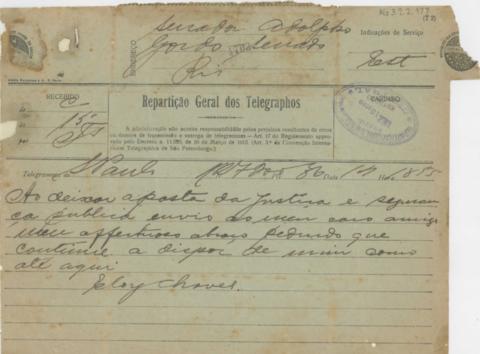 No 322.177
Senador Adolpho
Gordo Senado
Rio
ENDEREÇO
Indicações de Serviço
Est
RECEBIDO
CARIMBO
Repartição Geral dos Telegraphos
A administração não acceita responsabilidade pelos prejuizos resultantes de erros
ou demora de transmissão e entrega de telegrammas — Art. 17 do Regulamento appro-
vado pelo Decreto n. 11.520, de 10 de Março de 1915. (Art. 3.º da Convenção Interna-
cional Telegraphica de São Petersburgo.)
Telegramma S Paulo Data Hora 1855
Ao deixar a pasta da Justiça e seguran
ça publica envio ao meu caro amigo
meu affectuoso abraço pedindo que
continue a dispor de mim como
até aqui
Eloy Chaves.